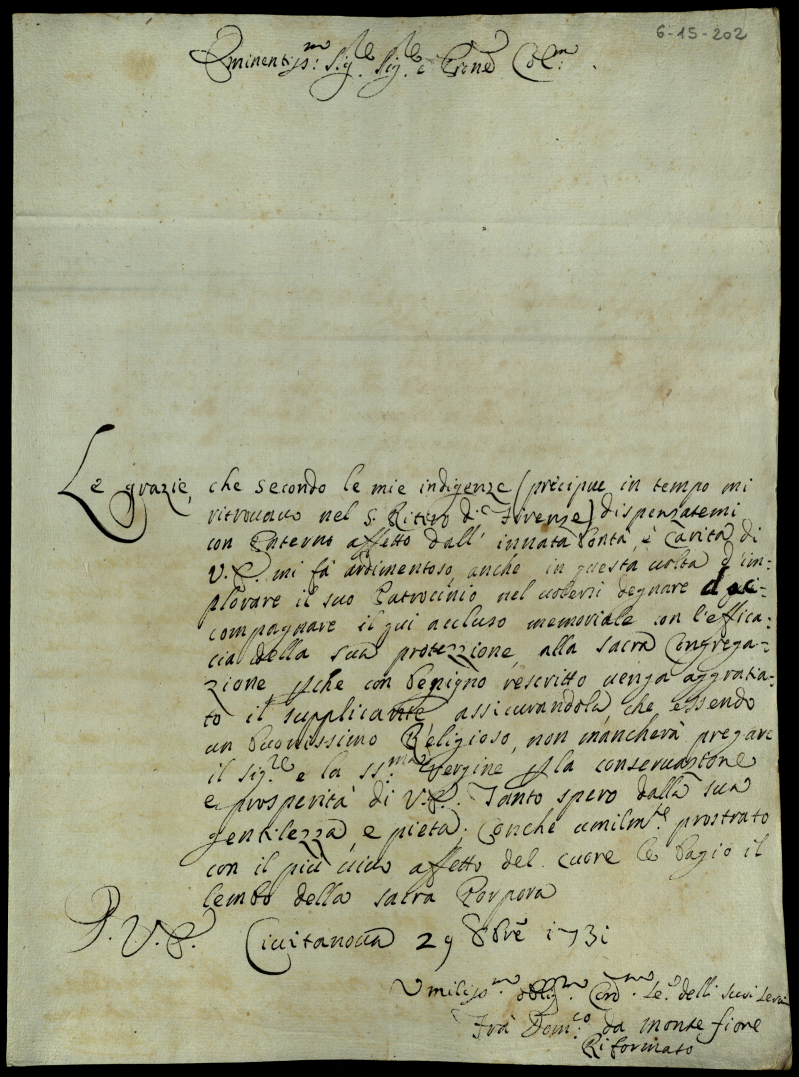 6-15-202
Eminentiss.mo Sig.re Sig.re e Prone Col.mo
Le grazie, che secondo le mie indigenze (precipue in tempo mi
ritrovavo nel S. Ritiro di Firenze) dispensatemi
con Paterno affetto dall' innata bontà, è Carità di
V.E. mi fà ardimentoso anche in questa volta d'im-
plorare il suo Patrocinio nel volersi degnare d'acc-
compagnare il qui accluso memoriale con l'effica-
cia della sua protezzione alla sacra Congrega-
zione, che con benigno rescritto venga aggratia-
to il supplicante, assicurandola, che essendo
un buonissimo Religioso, non mancherà pregare
il sig.re e la ss.ma Vergine p la conservatione
e prosperità di V.E. Tanto spero dalla sua
gentilezza e pietà. Conche umilm.te prostrato
con il più vivo affetto del cuore le bagio il
lembo della sacra Porpora
D. V. E. Civitanova 29 8bre 1731
Umiliss.mo obblig.mo Ord.mo Se.o delli suoi servi
Frà Dom.co da monte fiore
Riformato